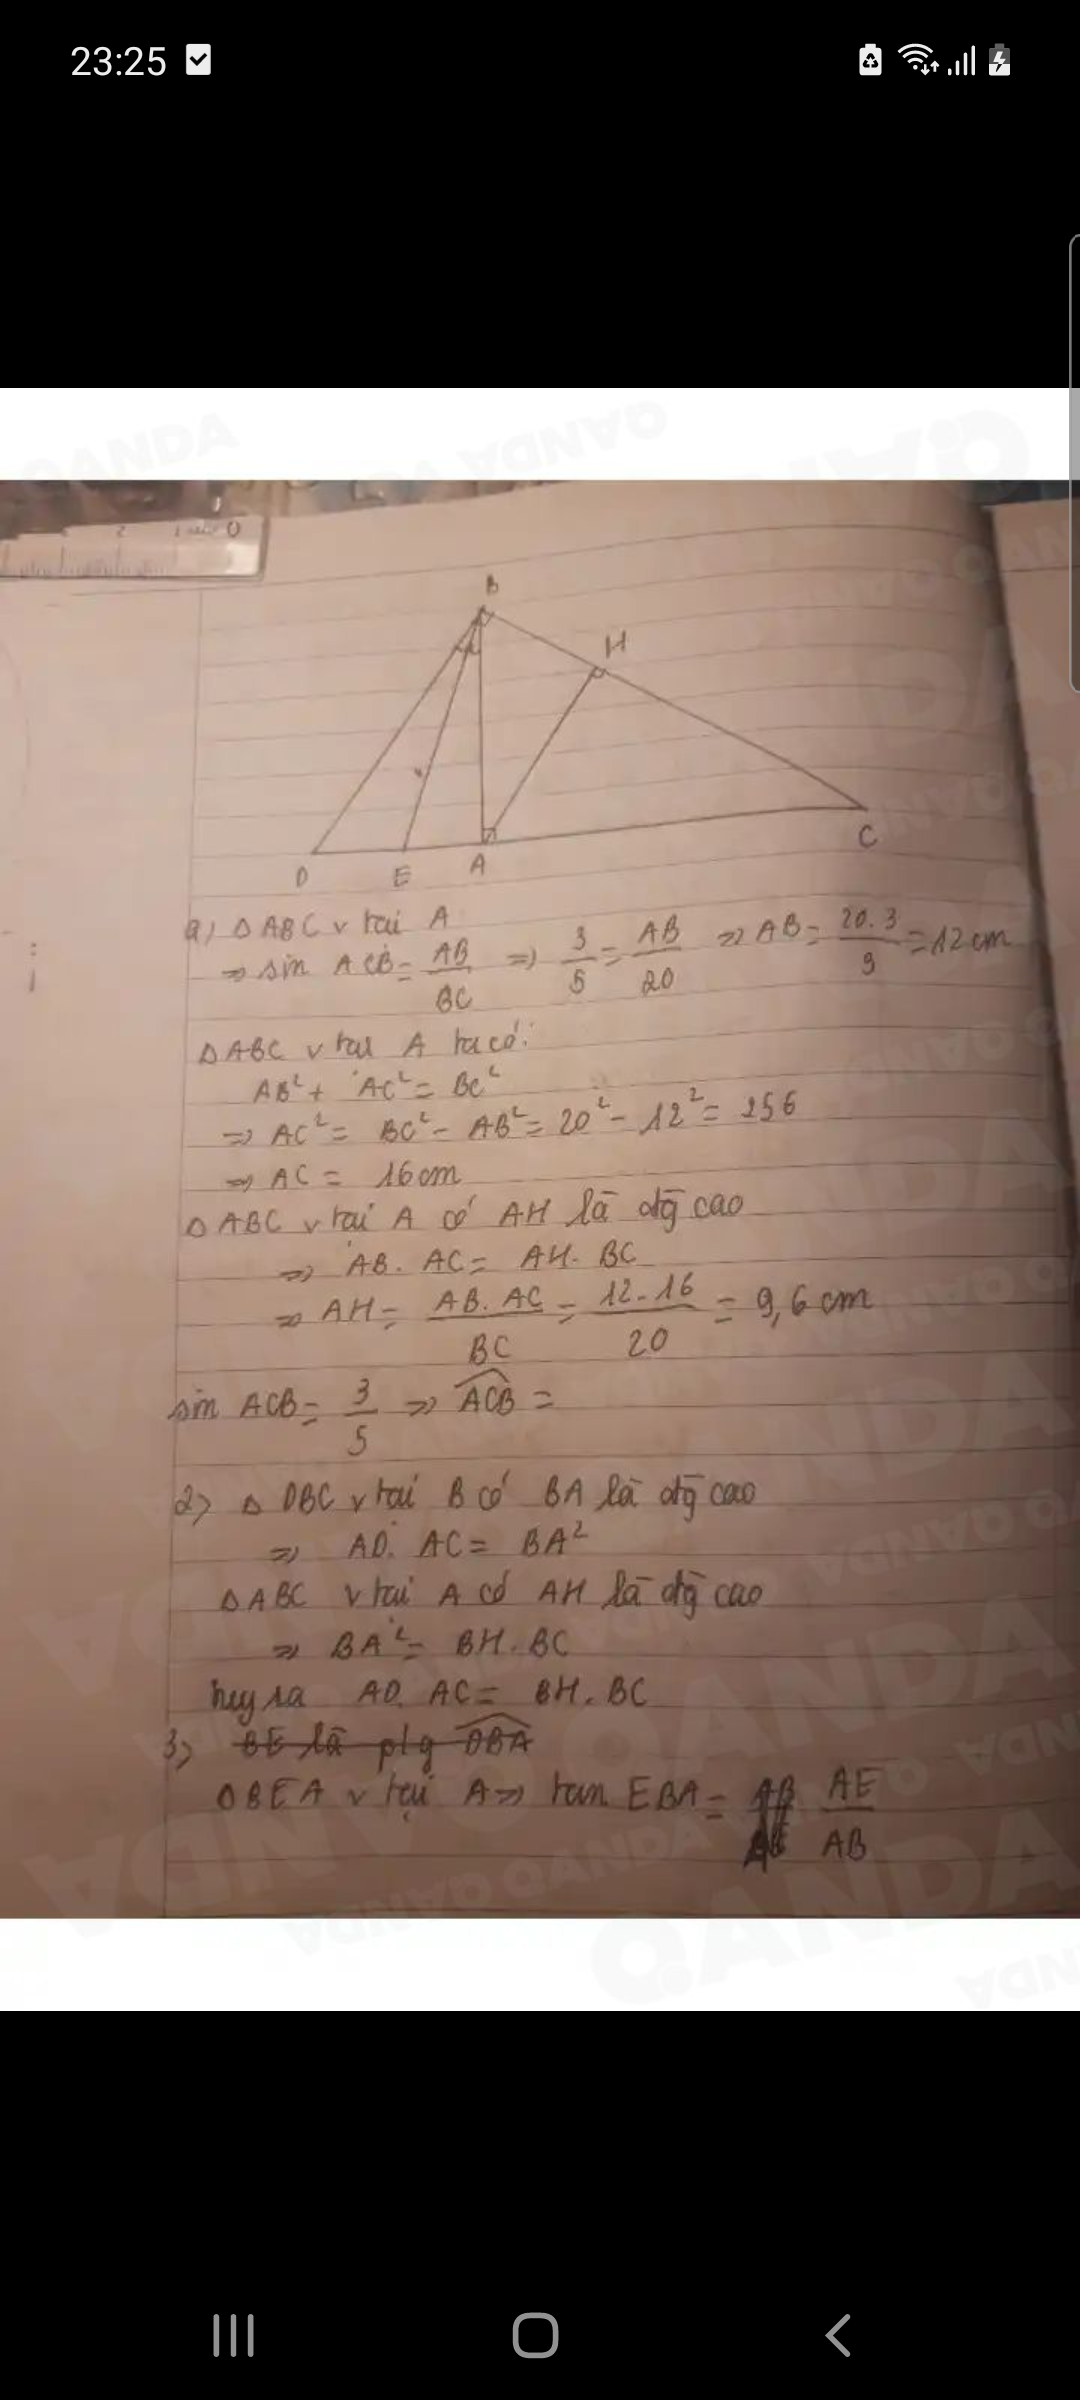 23:25
QANDA QANDA
0
B
H
D E A C
a) △ABC v tại A
=> sin ACB = AB/BC => 3/5 = AB/20 => AB = 20.3/5 = 12 cm
△ABC v tại A ta có:
AB² + AC² = BC²
=> AC² = BC² - AB² = 20² - 12² = 256
=> AC = 16 cm
△ABC v tại A có AH là đg cao
=> AB. AC = AH. BC
=> AH = AB. AC/BC = 12.16/20 = 9,6 cm
sin ACB = 3/5 => ACB =
2) △ DBC v tại B có BA là đg cao
=> AD. AC = BA²
△ABC v tại A có AH là đg cao
=> BA² = BH. BC
suy ra AD. AC = BH. BC
3) BE là p/g DBA
△BEA v tại A => tan EBA = AE/AB